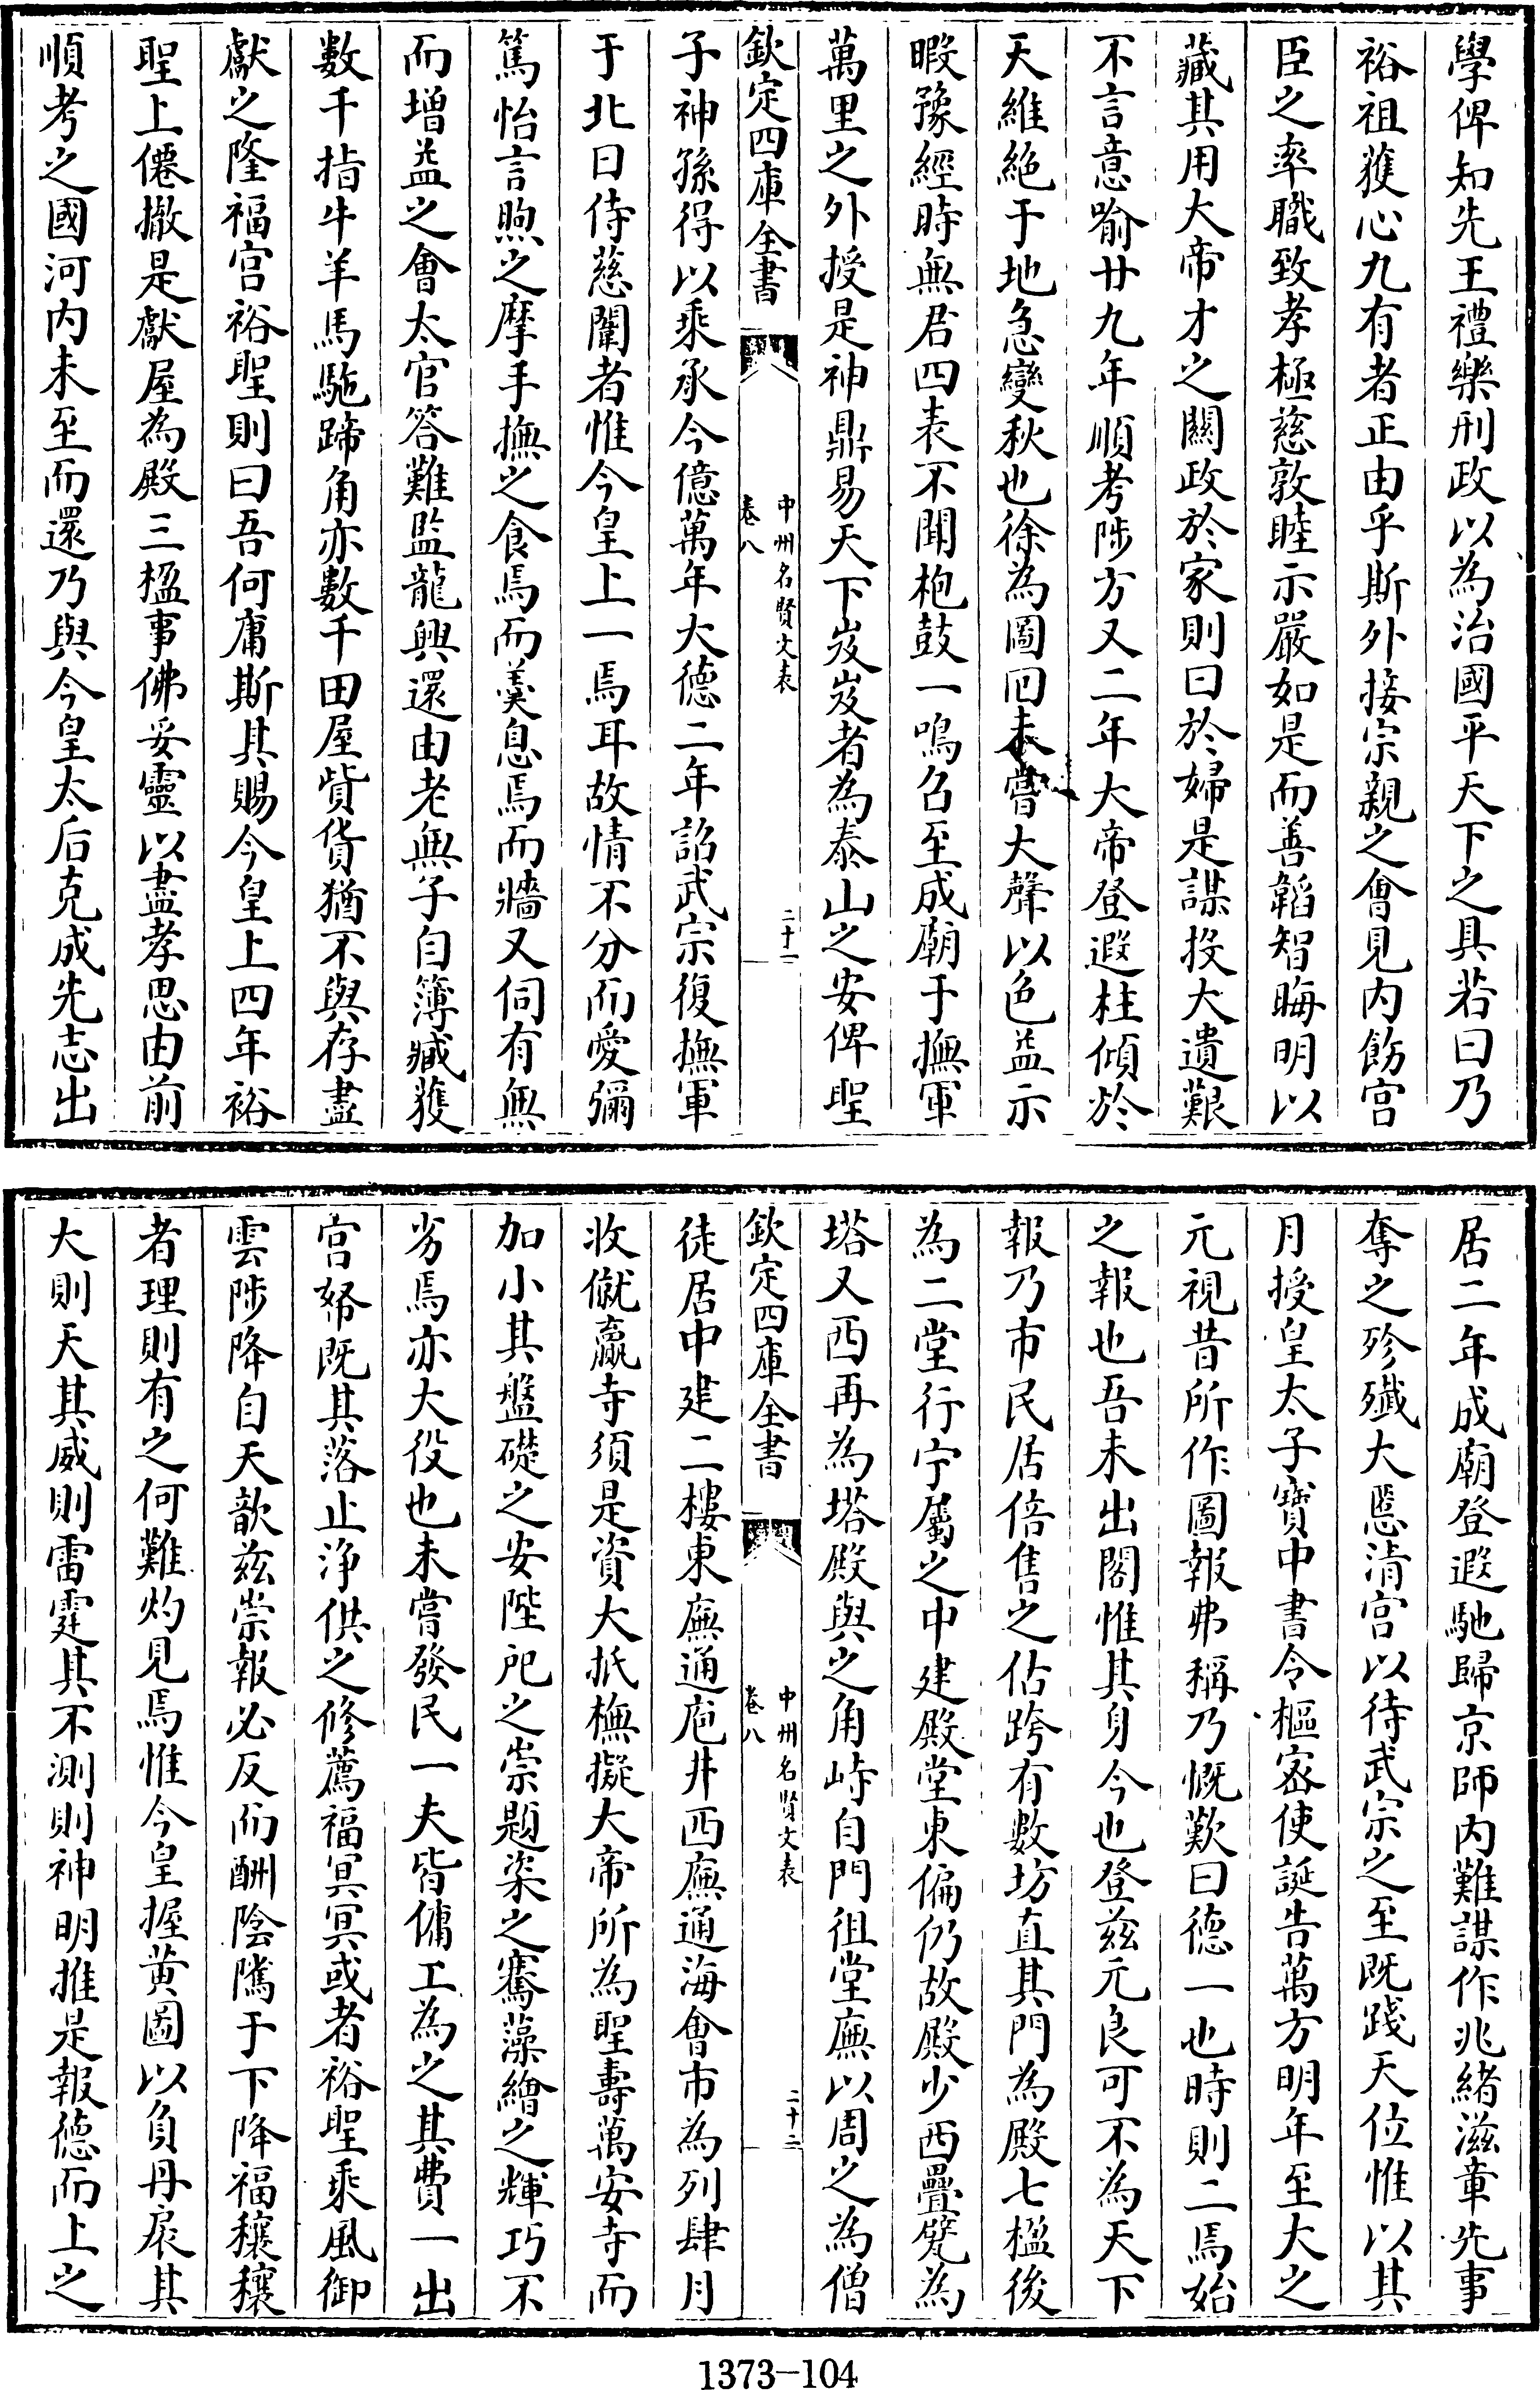 學俾知先王禮樂刑政以為治國平天下之具若曰乃
裕祖獲心九有者正由乎斯外接宗親之會見内飭宫
臣之率職致孝極慈敦睦示嚴如是而善韜智晦明以
藏其用大帝才之闗政於家則曰於婦是謀投大遺艱
不言意喻廿九年順考陟方又二年大帝登遐柱傾於
天維絶于地急變秋也徐為圖回未嘗大聲以色益示
暇豫經時無君四表不聞枹鼓一鳴召至成廟于撫軍
萬里之外授是神鼎易天下岌岌者為泰山之安俾聖
欽定四庫全書
中州名賢文表
卷八
二十一
子神孫得以乘承今億萬年大徳二年詔武宗復撫軍
于北日侍慈闈者惟今皇上一焉耳故情不分而愛彌
篤怡言煦之摩手撫之食焉而羮息焉而牆又伺有無
而增益之會太官答難監龍興還由老無子自簿臧獲
數千指牛羊馬駞蹄角亦數千田屋貲貨猶不與存盡
獻之隆福宫裕聖則曰吾何庸斯其賜今皇上四年裕
聖上僊撤是獻屋為殿三楹事佛妥靈以盡孝思由前
順考之國河内未至而還乃與今皇太后克成先志出
居二年成廟登遐馳歸京師内難謀作兆緒滋章先事
奪之殄殱大慝清宫以待武宗之至既踐天位惟以其
月授皇太子寶中書令樞宻使誕告萬方明年至大之
元視昔所作圖報弗稱乃慨歎曰徳一也時則二焉始
之報也吾未出閣惟其身今也登兹元良可不為天下
報乃市民居倍售之估跨有數坊直其門為殿七楹後
為二堂行宁屬之中建殿堂東偏仍故殿少西疊甓為
塔又西再為塔殿與之角峙自門徂堂廡以周之為僧
欽定四庫全書
中州名賢文表
卷八
二十二
徒居中建二樓東廡通庖井西廡通海會市為列肆月
收僦贏寺須是資大抵橅擬大帝所為聖壽萬安寺而
加小其盤礎之安陛戺之崇題楶之騫藻繪之輝巧不
劣焉亦大役也未嘗發民一夫皆傭工為之其費一出
宫帑既其落止浄供之修薦福冥冥或者裕聖乘風御
雲陟降自天歆兹崇報必反而酬隂隲于下降福穰穰
者理則有之何難灼見焉惟今皇握黄圖以負丹扆其
大則天其威則雷霆其不測則神明推是報徳而上之
1373-104